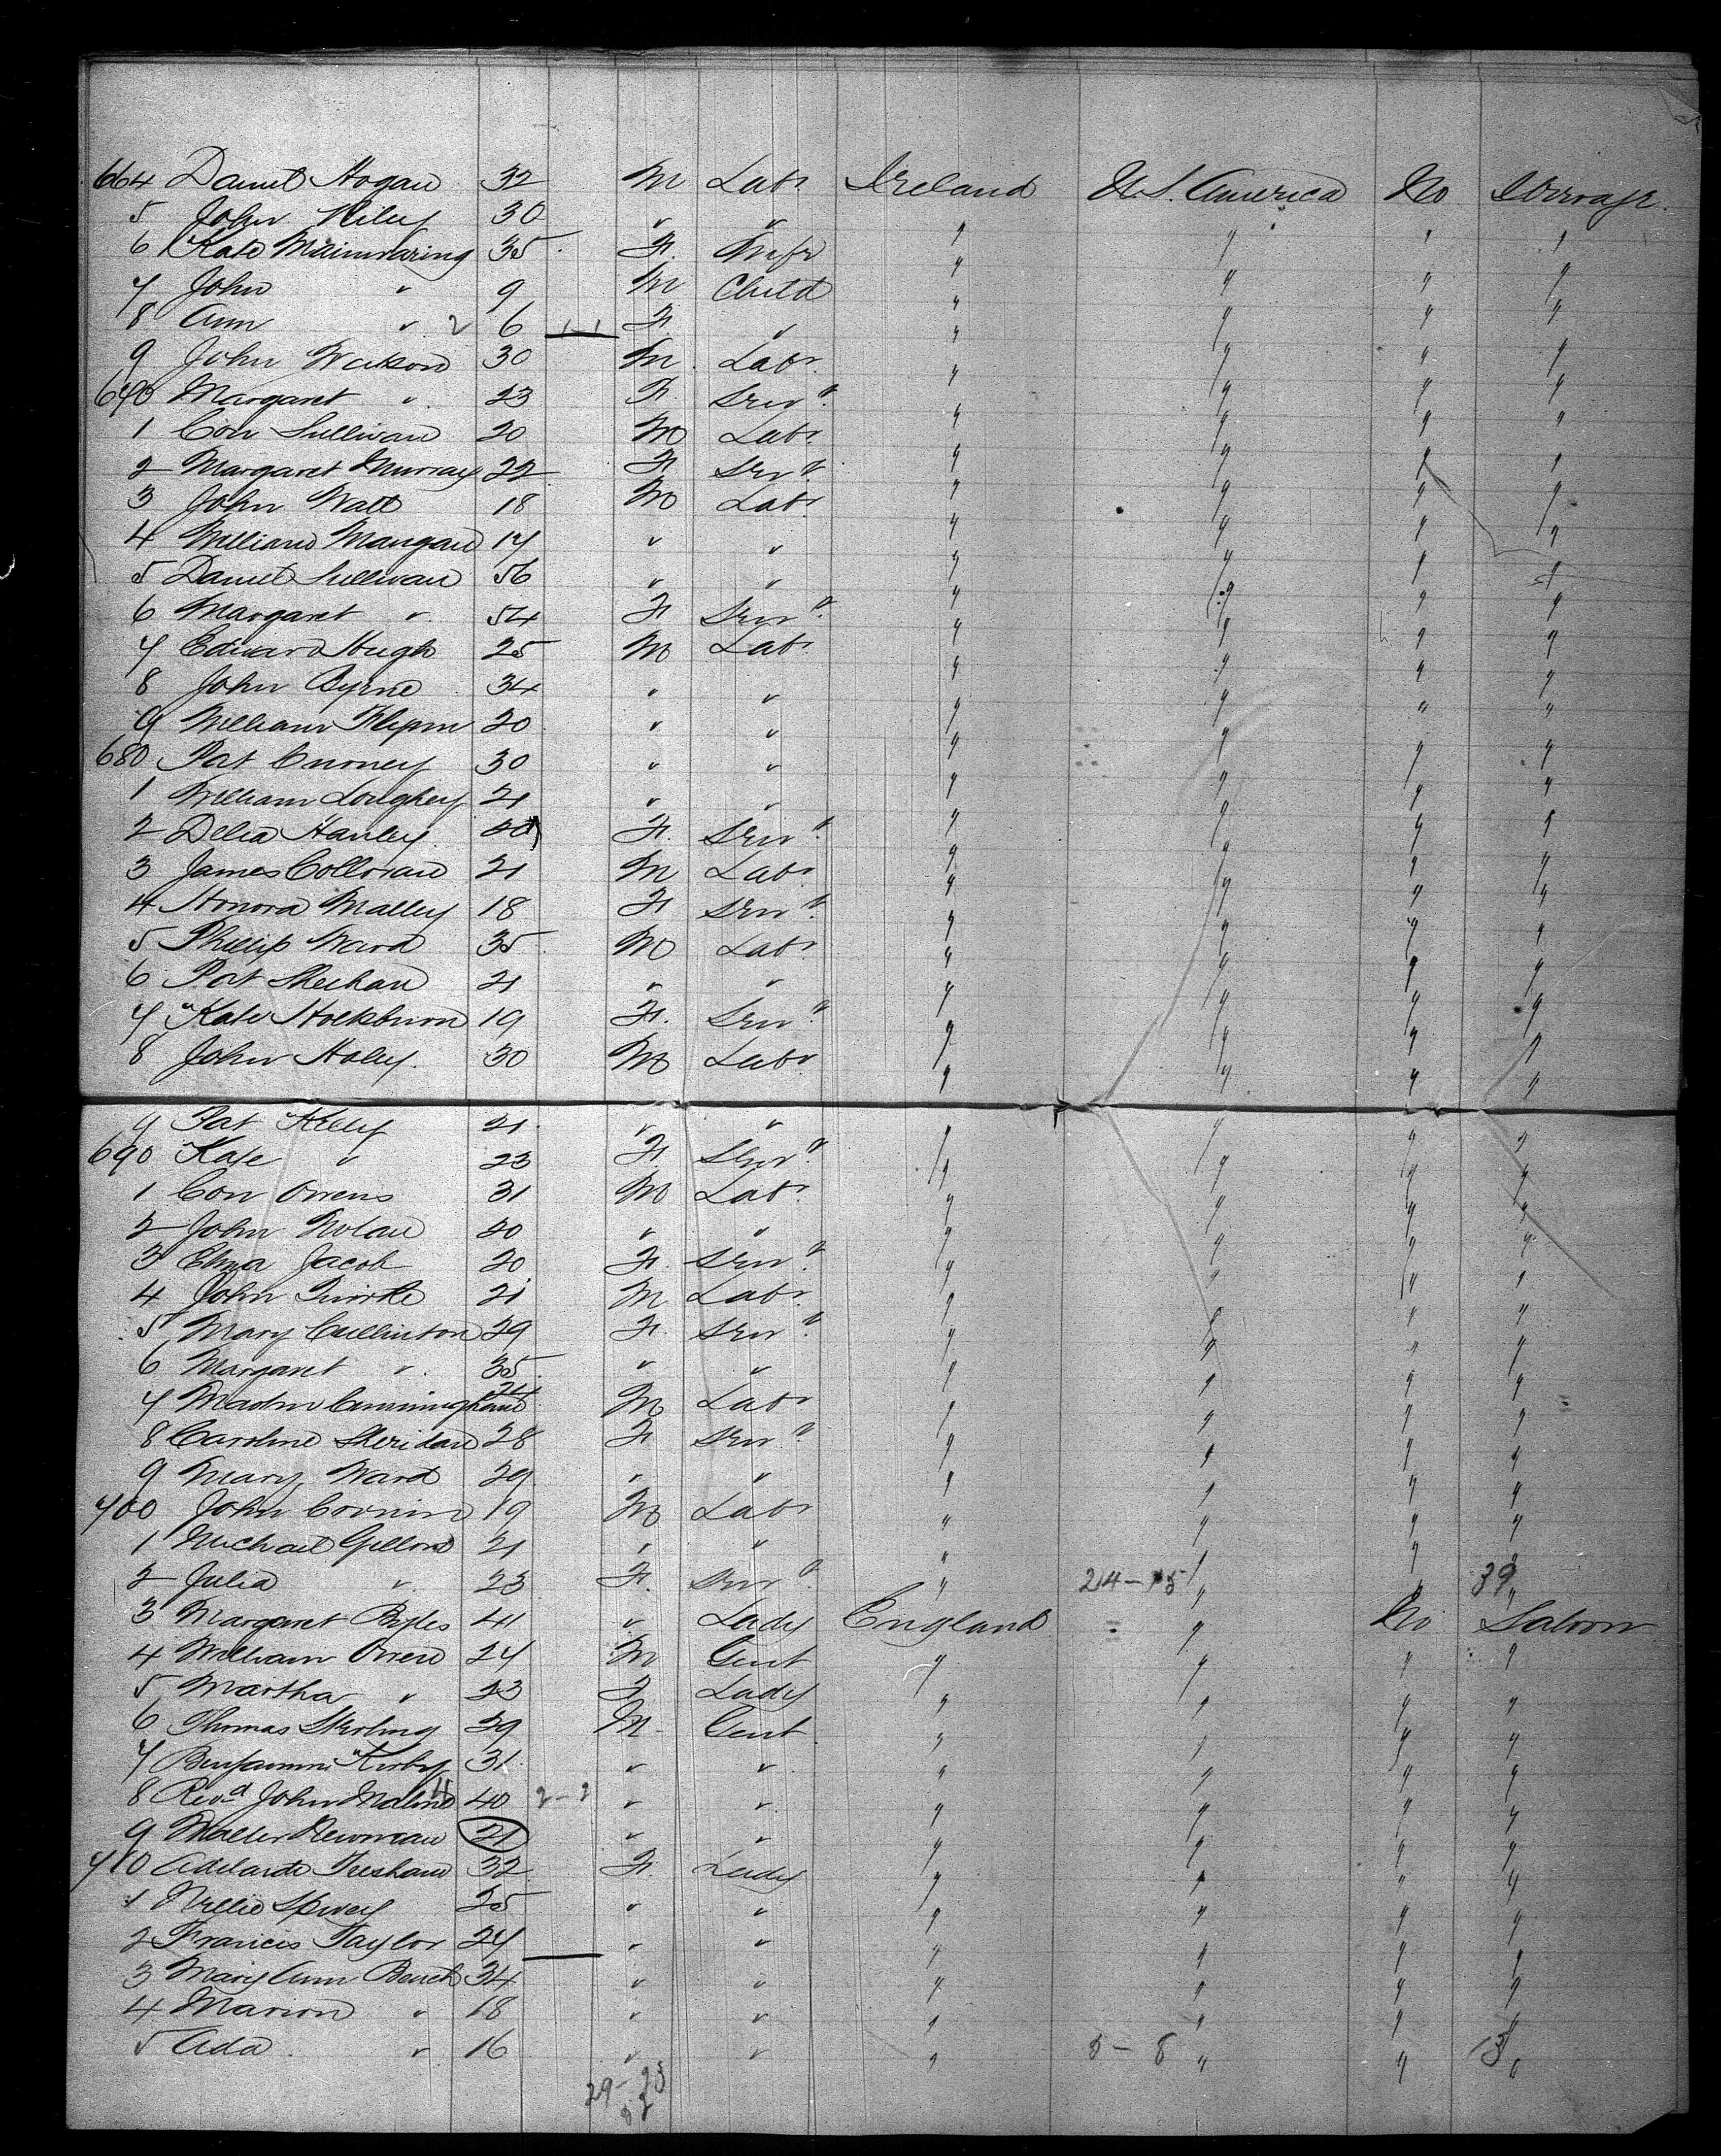 664 Daniel Hogan 32 M Labr Ireland U.S. America No Steerage
5 John Riley 30 " " " " " "
6 Kate Mainwaring 35 F. Wife " " " "
7 John " 9 M Child " " " "
8 Ann " 2 6 1-1 F. " " " " "
9 John Watson 30 M. Labr. " " " "
670 Margaret " 23 F. Serv't. " " " "
1 Con Sullivan 20 M Labr. " " " "
2 Margaret Murray 22 F Serv't. " " " "
3 John Watt 18 M Labr " " " "
4 William Mangan 17 " " " " " "
5 Daniel Sullivan 56 " " " " " "
6 Margaret " 54 F Serv't. " " " "
7 Edward Hugh 25 M Labr. " " " "
8 John Byrne 34 " " " " " "
9 William Flynn 20 " " " " " "
680 Pat Curney 30 " " " " " "
1 William Loughey 21 " " " " " "
2 Delia Hanley 20 F. Serv't. " " " "
3 James Colloran 21 M Labr " " " "
4 Honora Malley 18 F Serv't. " " " "
5 Phillip Ward 35 M Labr " " " "
6 Pat Sheehan 21 " " " " " "
7 Kate 19 F. Serv't. " " " "
8 John Haley. 30 M Labr. " " " "
9 Pat Kelly 21 " " " " " "
690 Kate " 23 F. Serv't. " " " "
1 Con Owens 31 M Labr. " " " "
2 John Nolan 20 " " " " " "
3 Eliza Jacob 20 F. Serv't. " " " "
4 John Quirke 21 M Labr. " " " "
5 Mary Cullinton 29 F. Serv't. " " " "
6 Margaret " 35 " " " " " "
7 Martin Cunningham 24 M Labr " " " "
8 Caroline Sheridan 28 F Serv't. " " " "
9 Mary Ward 29 " " " " " "
700 John 19 M Labr " " " "
1 Michael 21 " " " " " "
2 Julia " 23 F. Serv't. " 24-15 " " 39 "
3 Margaret Boyles 41 " Lady England " No Saloon
4 William Owen 27 M Gent " " " "
5 Martha " 23 F Lady " " " "
6 Thomas Sterling 29 M Gent " " " "
7 Benjamin Kirby 31 " " " " " "
8 Revd John Malone 4 40 2-2 " " " " " "
9 Walter Newman 21 " " " " " "
710 Adelaide Tresham 32 F. Lady " " " "
1 Nellie Spivey 25 " " " " " "
2 Francis Taylor 27 " " " " " "
3 Mary Ann Beach 34 " " " " " "
4 Marion " 18 " " " " " "
5 Ada " 16 " " " 5-8 " " 13 "
29-23
52